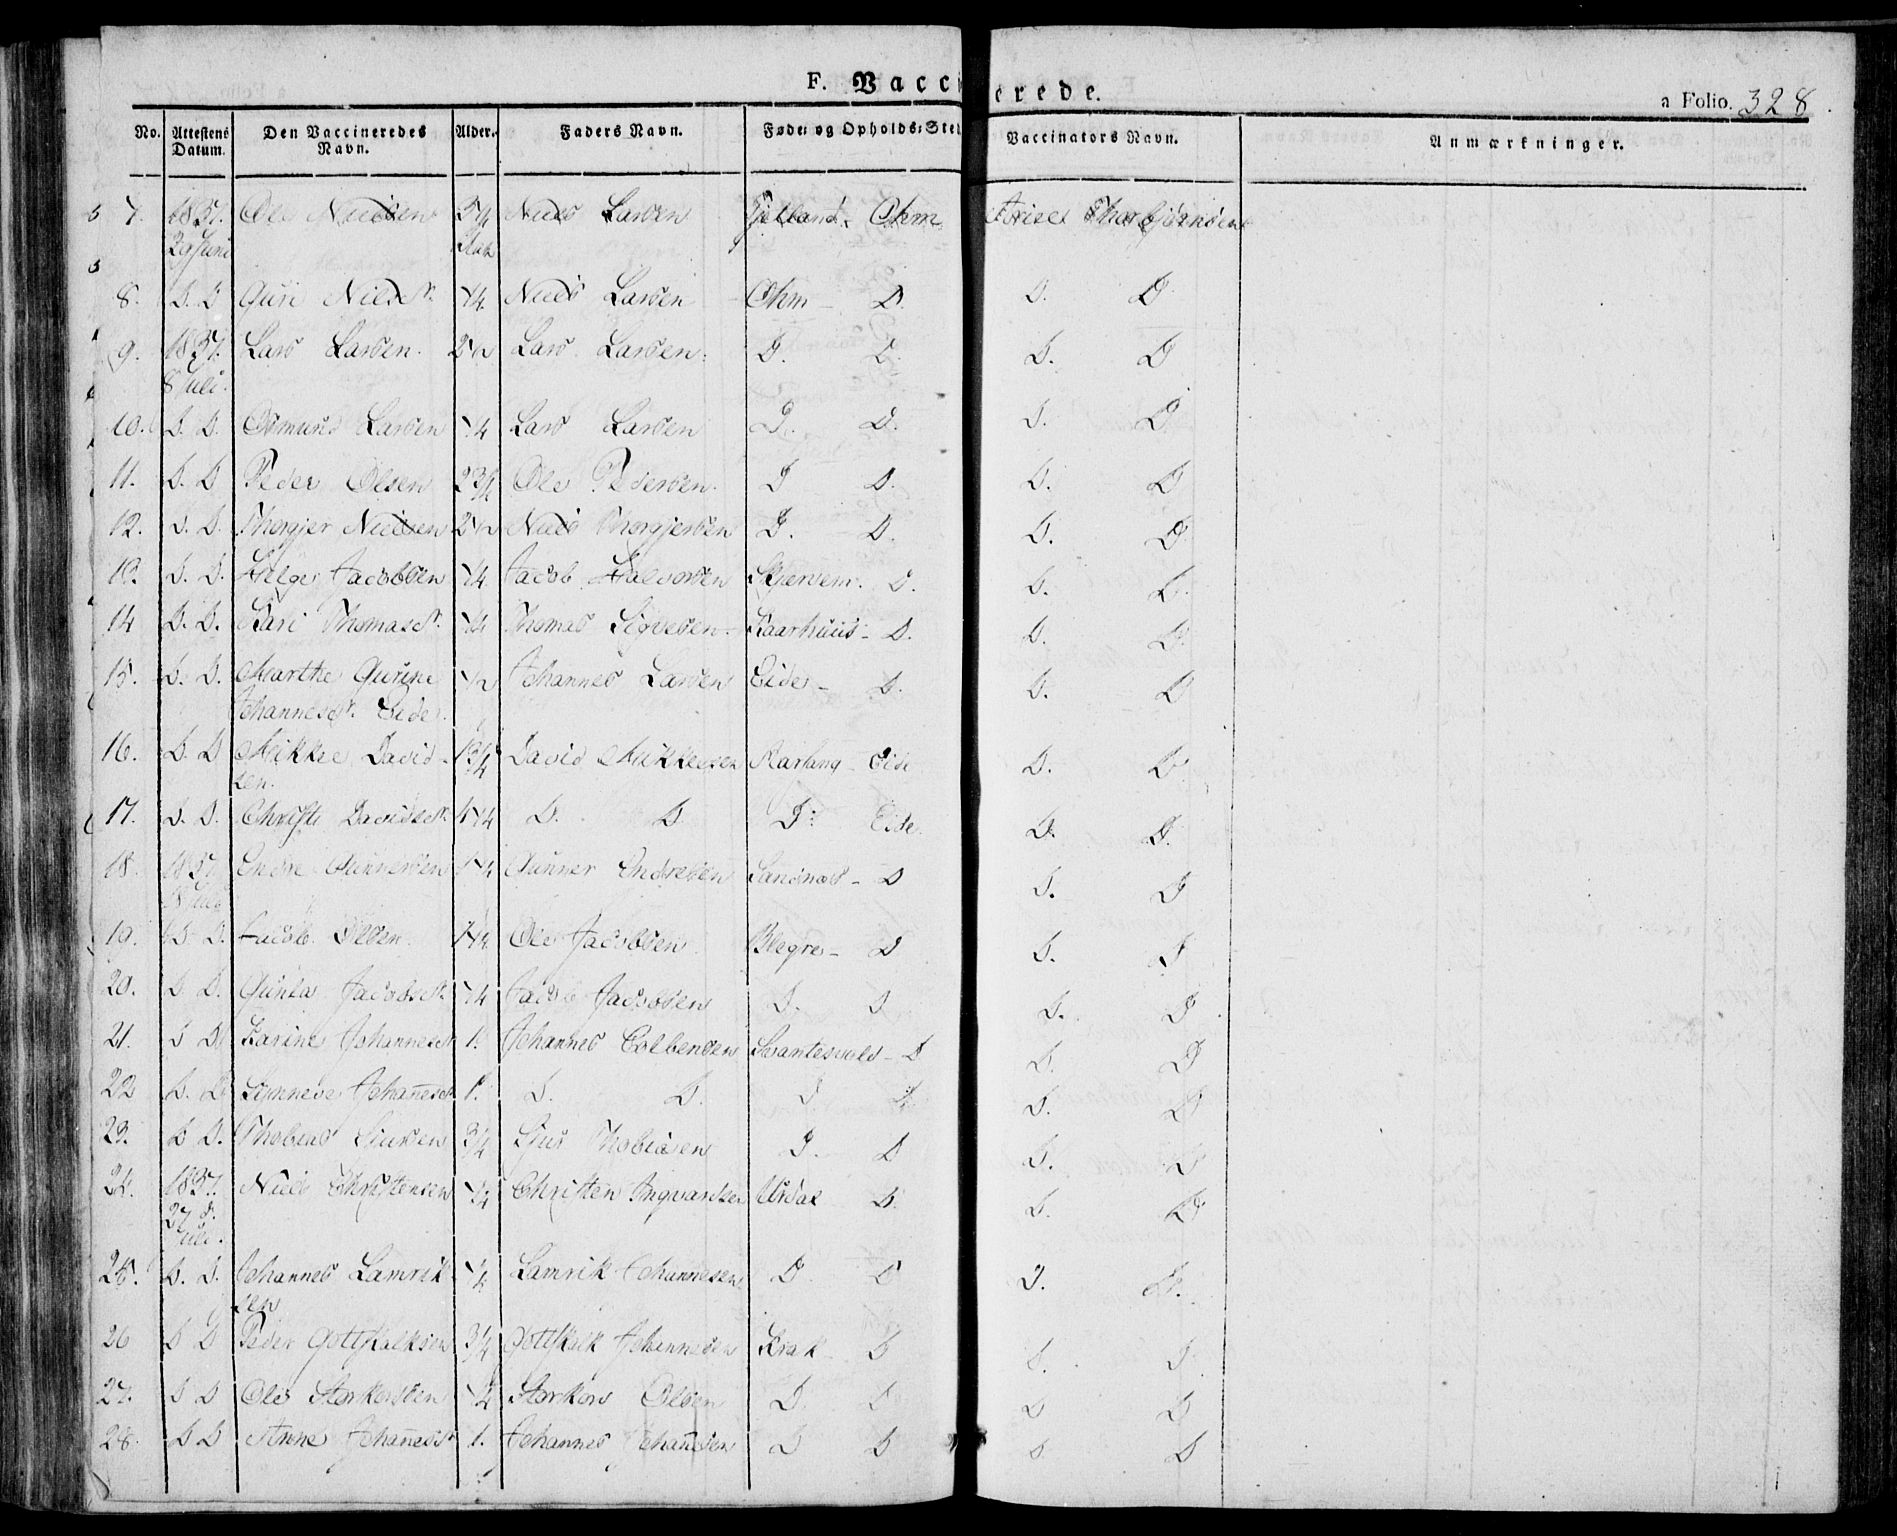 F. Vaccinerede.
a Folio. 328.
No. Attestens Datum. Den Vaccineredes Navn. Alder. Faders Navn. Føde- og Opholds-Sted Vaccinators Navn. Anmærkninger.
7. 1837. Ole Nielsen Niels Larsen Gjelland. Ohm Thorbjørnsen
29 Juni
8. D. D Guri Nilsdr. 1/4 Niels Larsen Ohm - D. D. D
9. 1837. Lars Larsen. 2 1/2 Lars Larsen. D. D. D. D
8 Juli.
10. D. D. Osmund Larsen 1/4 Lars Larsen D. D. D. D
11. D. D Peder Olsen 2 3/4 Ole Pedersen. D D. D. D
12. D. D. Thorgjer Nielsen 2 1/2 Niels Thorgjersen D. D. D. D
13. D. D. Helge Jacobsen 1/4 Jacob Halvorsen Skjervem. D. D. D.
14 D. D. Kari Thomasdr. 1/4 Thomas Sigvesen - Kaarhuus - D. D. D.
15. D. D. Marthe Gurine 1/2 Johannes Larsen Eide - D. D. D
Johannesdr. Eide.
16. D. D Mikkel David- 1 3/4 David Mikkelsen Rørtang - Eide D. D
sen.
17. D. D. Christi Davidsdr. D. D D. Eide. D. D.
18. 1837 Endre Gunnersen 1 1/4 Gunner Endresen Sandnæs - D D. D
19. D D. Jacob Olsen. Ole Jacobsen Blegre - D D. D
20. D D. Gunla Jacobsdr. 1/4 Jacob Jacobsen D. D D. D
21. D D Karine Johannesdr 1. Johannes Colbensen Svantesvold - D D. D
22 D. D Johanesdr 1. D. D. D D. D. D
23. D D. Thobias Siursen 3/4 Sjur Thobiasen D. D D. D
24. 1837. Niels Christensen 1/4 Christen Ingvardsen Urdal D. D. D
27 d.
Juli.
25. D. D. Johannes Lamrik- 1/4 Lamrik Johannesen D D D. D.
sen
26 D D Peder Gottskalksen 3/4 Gottskalk Johannesen Krak D D. D
27. D D Ole Storkorsen 1/4 Storkors Olsen D. D D D
28. D D Anne Johanesdr 1. Johannes Johanesen D D D D